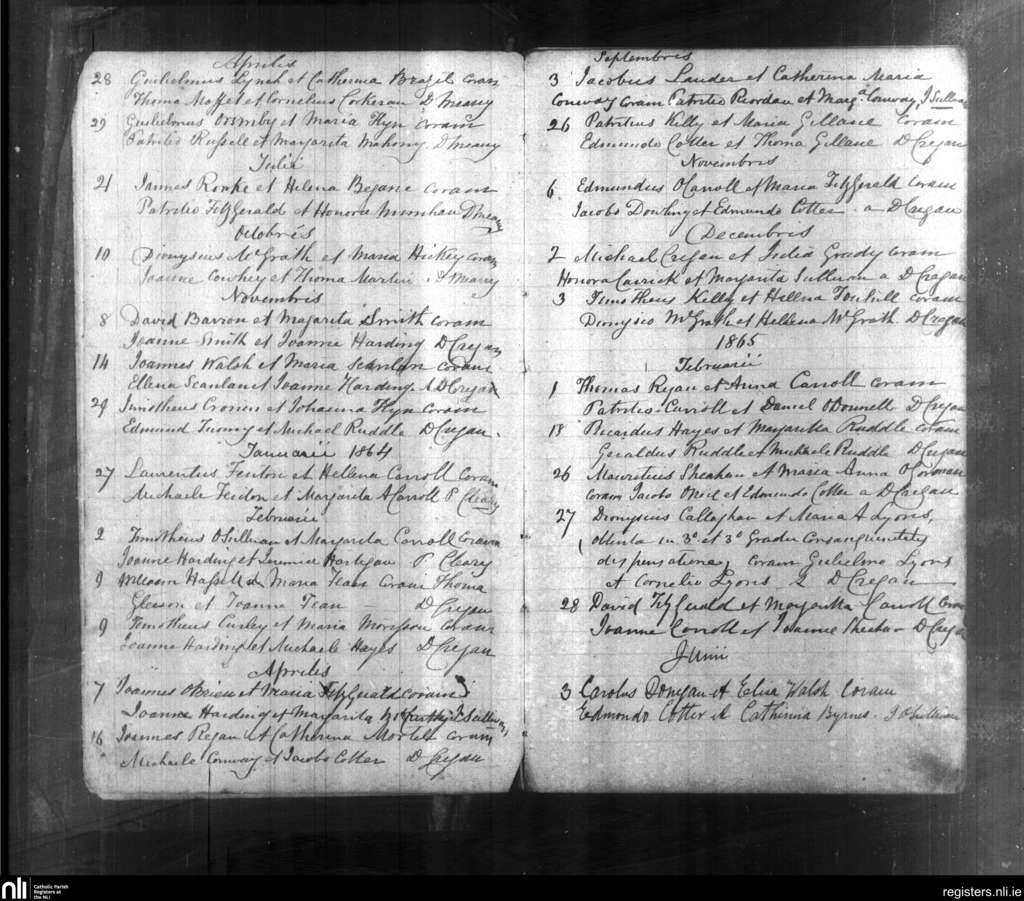 Aprilis
28 Gulielmus Lynch et Catherina Brazil coram
Thoma Moffet et Cornelius Corkeran D Meany
29 Gulielmus Ormsby et Maria Flyn coram
Patritio Russell et Margarita Mahony D Meany
Julii
21 Joannes Rorke et Helena Begane coram
Patritio FitzGerald et Honora D Meany
Octobris
10 Dionysius McGrath et Maria Hickey coram
Joanne Cowhey et Thoma Martin Meany
Novembris
8 David Barron et Magarita Smith coram
Joanne Smith et Joanne Harding D Cregan
14 Joannes Walsh et Maria Scanlan coram
Ellena Scanlan et Joanne Harding A D Cregan
29 Timotheus Cronin et Johanna Flyn coram
Edmund Tuomy et Michael Ruddle D Cregan.
Januarii 1864
27 Laurentius Fenton et Hellena Carroll coram
Michaele et Margarita A Carroll P Cleary
Februarii
2 Timotheus OSullivan et Margarita Carroll coram
Joanne Harding et Hartigan P Cleary
9 William et Maria coram Thoma
Gleeson et Joanne D Cregan
9 Timotheus Curley et Maria Morrison coram
Joanne Harding et Michaele Hayes D Cregan
Aprilis
7 Joannes OBrien et Maria FitzGerald coram
Joanne Harding et Margarita J Sullivan
16 Joannes Regan et Catherina Mortell coram
Michaele Conway et Jacobo Cotter D Cregan
Septembris
3 Jacobus Lauder et Catherina Maria
Conway coram Patritio Reordan et Marga. Conway J Sullivan
26 Patritius Kelly et Maria Gillane coram
Edmundo Cotter et Thoma Gillane D Cregan
Novembris
6 Edmundus OCarroll et Maria FitzGerald coram
Jacobo Dowling et Edmundo Cotter a D Cregan
Decembris
2 Michael Cregan et Julia Grady coram
Honora Carrick et Margarita Sullivan a D Cregan
3 Timotheus Kelly et Hellena coram
Dionysio McGrath et Hellena McGrath D Cregan
1865
Februarii
1 Thomas Ryan et Anna Carroll coram
Patritio Carroll et Daniel ODonnell D Cregan
13 Ricardus Hayes et Margaretta Ruddle coram
Geraldus Ruddle et Michaele Ruddle D Cregan
26 Mauritius Sheahan et Maria Anna
coram Jacobo ONeil et Edmundo Cotter a D Cregan
27 Dionysius Callaghan et Maria A Lyons,
obtenta in 3o et 3o Gradu Consanguinitatis
dispensatione, coram Gulielmo Lyons
et Cornelio Lyons D Cregan
28 David FitzGerald et Margaretta Carroll coram
Joanne Carroll et Joanne Sheehan D Cregan
Junii
3 Carolus Donegan et Eliza Walsh coram
Edmondo Cotter et Catherina Byrnes. J OSullivan
nli
Catholic Parish
Registers at
the NLI
registers.nli.ie